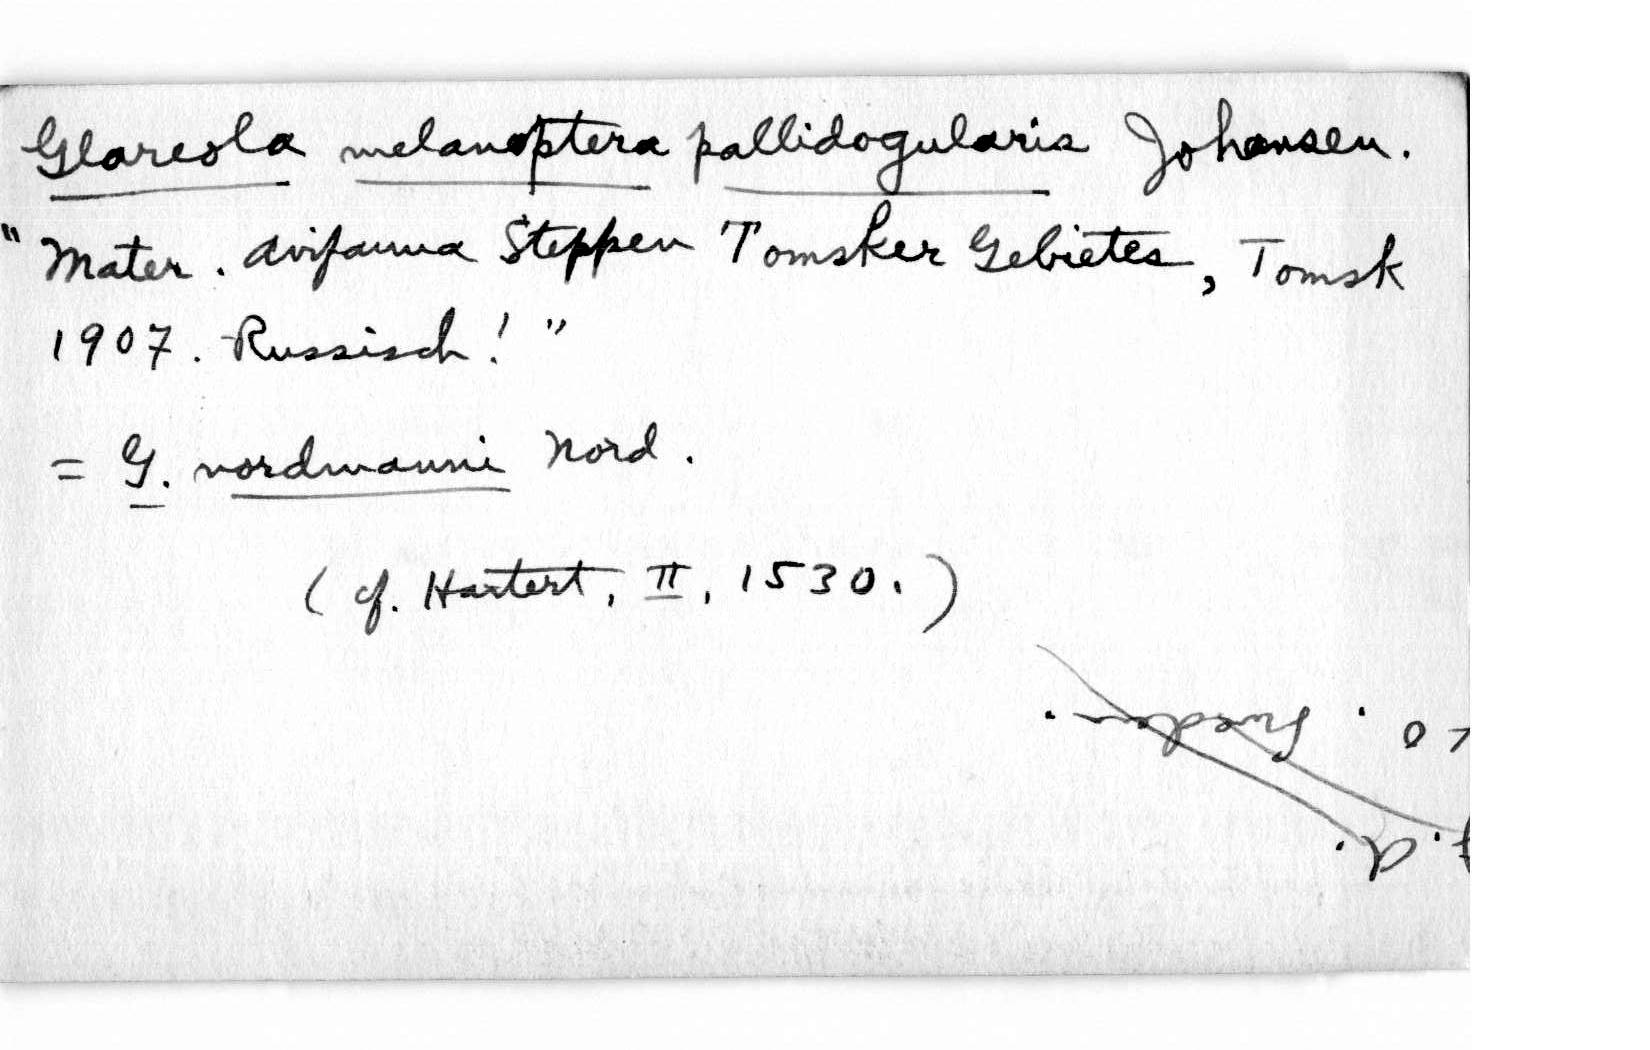 Glareola melanoptera pallidogularis Johansen.
"Mater. Avifauna Steppen Tomsker Gebietes, Tomsk
1907. Russisch!"
= G. nordmanni Nord.
(cf. Hartert, II, 1530.)